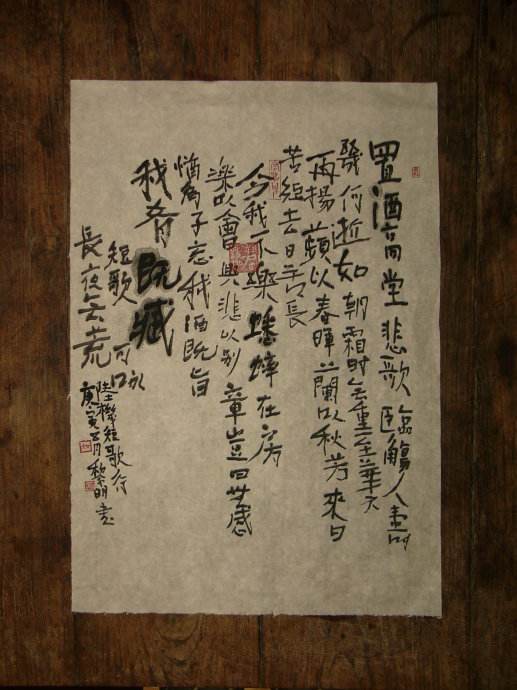 置酒高堂悲歌臨觴人壽
幾何逝如朝霜時无重至華不
再揚蘋以春暉蘭以秋芳來日
苦短去日苦長
今我不樂蟋蟀在房
樂以會興悲以別章豈曰無感
憂為子忘我酒既旨
我肴既臧
短歌可詠
長夜无荒
陸機短歌行
庚寅月黎明書